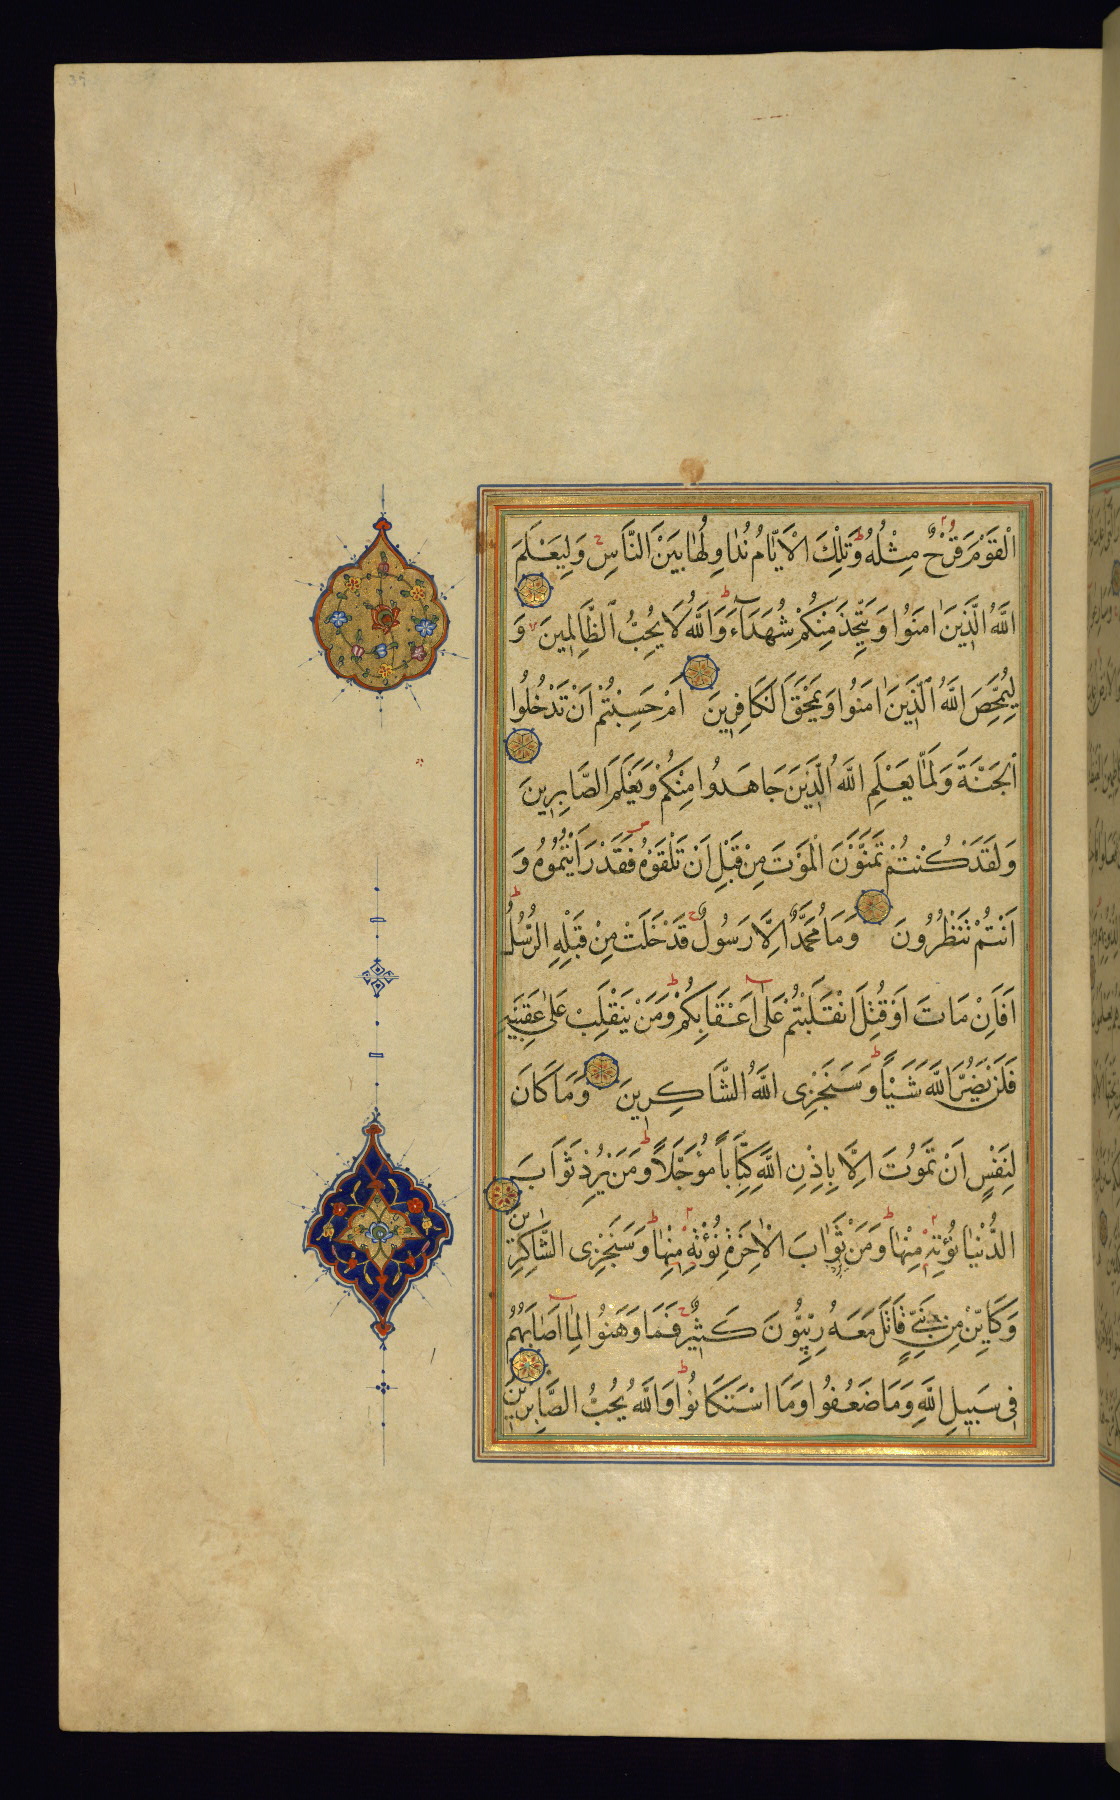 الْقَوْمَ قَرْحٌ مِثْلُهُ وَتِلْكَ الْاَيَّامُ نُدَاوِلُهَا بَيْنَ النَّاسِ وَلِيَعْلَمَ
اللَّهُ الَّذِينَ اٰمَنُوا وَيَتَّخِذَ مِنْكُمْ شُهَدَآءَ وَاللَّهُ لَا يُحِبُّ الظَّالِمِينَ وَ
لِيُمَحِّصَ اللَّهُ الَّذِينَ اٰمَنُوا وَيَمْحَقَ الْكَافِرِينَ اَمْ حَسِبْتُمْ اَنْ تَدْخُلُوا
الْجَنَّةَ وَلَمَّا يَعْلَمِ اللَّهُ الَّذِينَ جَاهَدُوا مِنْكُمْ وَيَعْلَمَ الصَّابِرِينَ
وَلَقَدْ كُنْتُمْ تَمَنَّوْنَ الْمَوْتَ مِنْ قَبْلِ اَنْ تَلْقَوْهُ فَقَدْ رَاَيْتُمُوهُ وَ
اَنْتُمْ تَنْظُرُونَ وَمَا مُحَمَّدٌ اِلَّا رَسُولٌ قَدْ خَلَتْ مِنْ قَبْلِهِ الرُّسُلُ
اَفَاِنْ مَاتَ اَوْ قُتِلَ انْقَلَبْتُمْ عَلٰى اَعْقَابِكُمْ وَمَنْ يَنْقَلِبْ عَلٰى عَقِبَيْهِ
فَلَنْ يَضُرَّ اللَّهَ شَيْئًا وَسَيَجْزِى اللَّهُ الشَّاكِرِينَ وَمَا كَانَ
لِنَفْسٍ اَنْ تَمُوتَ اِلَّا بِاِذْنِ اللَّهِ كِتَابًا مُؤَجَّلًا وَمَنْ يُرِدْ ثَوَابَ
الدُّنْيَا نُؤْتِهِ مِنْهَا وَمَنْ يُرِدْ ثَوَابَ الْاٰخِرَةِ نُؤْتِهِ مِنْهَا وَسَنَجْزِى الشَّاكِرِينَ
وَكَاَيِّنْ مِنْ نَبِيٍّ قَاتَلَ مَعَهُ رِبِّيُّونَ كَثِيرٌ فَمَا وَهَنُوا لِمَا اَصَابَهُمْ
فِى سَبِيلِ اللَّهِ وَمَا ضَعُفُوا وَمَا اسْتَكَانُوا وَاللَّهُ يُحِبُّ الصَّابِرِينَ